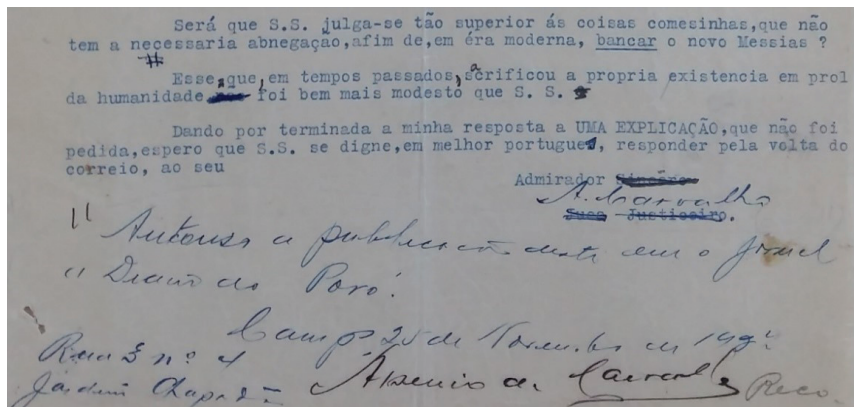 Será que S.S. julga-se tão superior ás coisas comesinhas,que não
tem a necessaria abnegação,afim de,em éra moderna, bancar o novo Messias ?
Esse,que,em tempos passados,sacrificou a propria existencia em prol
da humanidade foi bem mais modesto que S. S.
Dando por terminada a minha resposta a UMA EXPLICAÇÃO,que não foi
pedida,espero que S.S. se digne,em melhor portugues, responder pela volta do
correio, ao seu
Admirador
A. Carvalho
Justiceiro.
" Autoriso a publicação desta em o jornal
" Diario do Povo.
Campª 25 de Novembro de
Rua 3 nº 4
Jardim Chapadão Arsenio de Carvalho